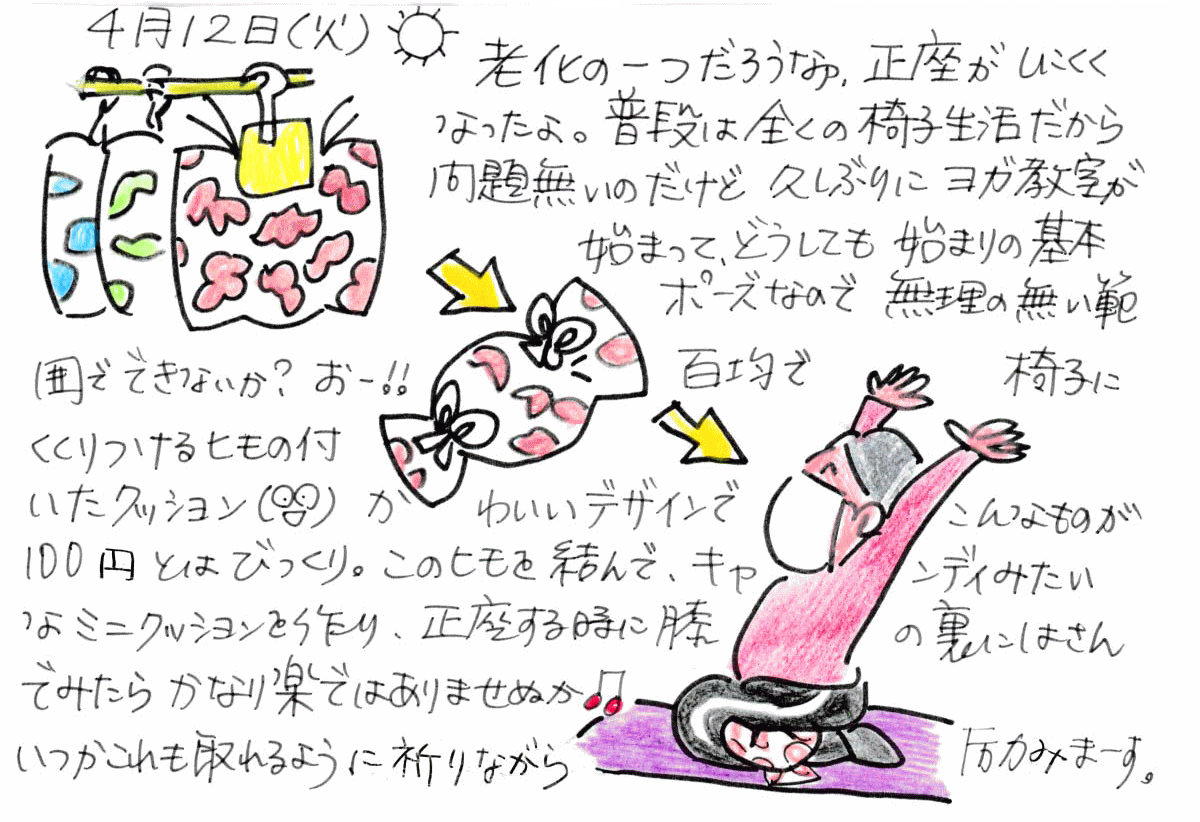 4月12日(火)
老化の一つだろうなぁ、正座がしにくく
なったよ。普段は全くの椅子生活だから
問題無いのだけど 久しぶりに ヨガ教室が
始まって、どうしても 始まりの基本
ポーズなので 無理の無い範
囲でできないか? おー!! 百均で 椅子に
くくりつけるヒモの付
いたクッション( ) かわいいデザインで こんなものが
100円とはびっくり。このヒモを結んで、キャンディみたい
なミニクッションを作り、正座する時に膝の裏にはさん
でみたら かなり楽ではありませぬか♫
いつかこれも取れるように祈りながら 励みまーす。